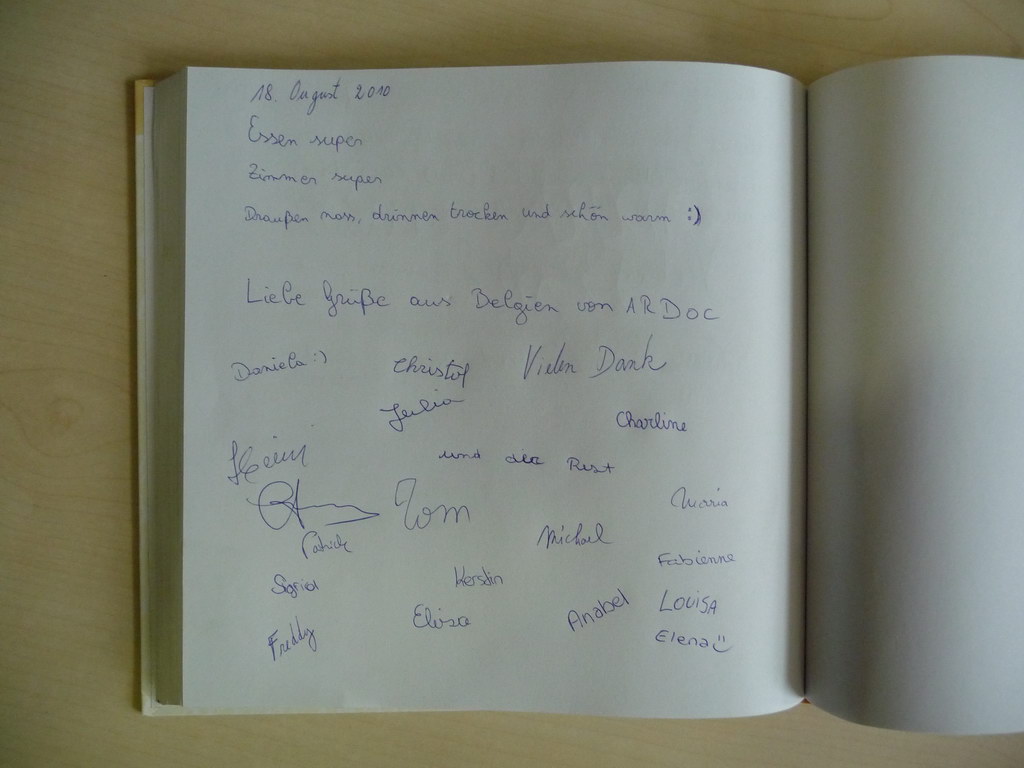 18. August 2010
Essen super
Zimmer super
Draußen nass, drinnen trocken und schön warm :)
Liebe Grüße aus Belgien von ARDOC
Daniela :) Christof Vielen Dank
Julia
Charline
Heini
und der Rest
Tom
Maria
Patrick
Michael
Fabienne
Sigrid
Kerstin
Anabel
Louisa
Freddy
Elisa
Elena